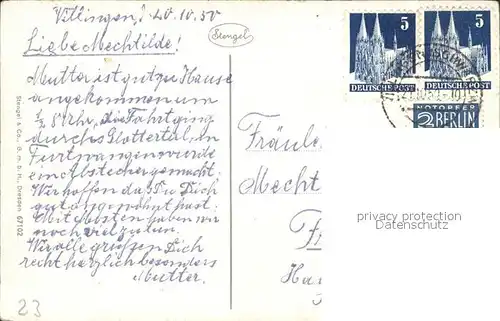 Villingen, 20.10.50
Liebe Mechtilde!
Stengel
Mutter ist gut zu Hause
angekommen um
½ 8 Uhr, die Fahrt ging
durchs Glottertal, in
Furtwangen wurde
ein Abstecher gemacht.
Wir hoffen das Du Dich
gut angewöhnt hast.
Mit Mosten haben wir
noch viel zu tun.
Wir alle grüßen Dich
recht herzlich besonders
Mutter.
Stengel & Co., G.m.b.H., Dresden 67102
23
5 5
DEUTSCHE POST DEUTSCHE POST
NOTOPFER
2 BERLIN
Fräule
Mecht
privacy protection
Datenschutz